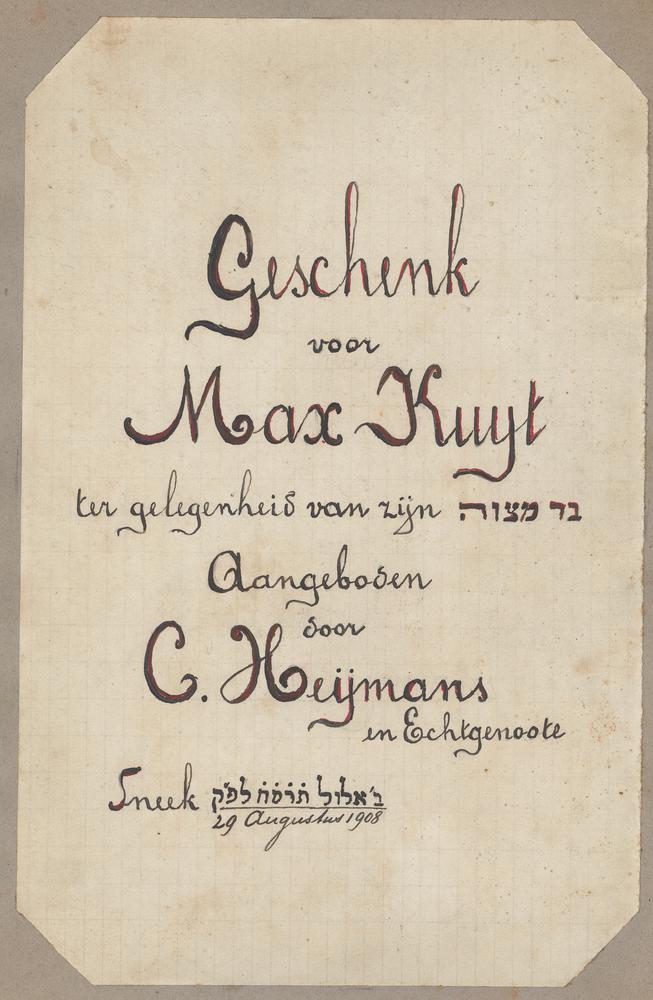 Geschenk
voor
Max Kuyt
ter gelegenheid van zijn בר מצוה
Aangeboden
door
C. Heijmans
en Echtgenoote
Sneek ב׳ אלול תרס״ח לפ״ק
29 Augustus 1908